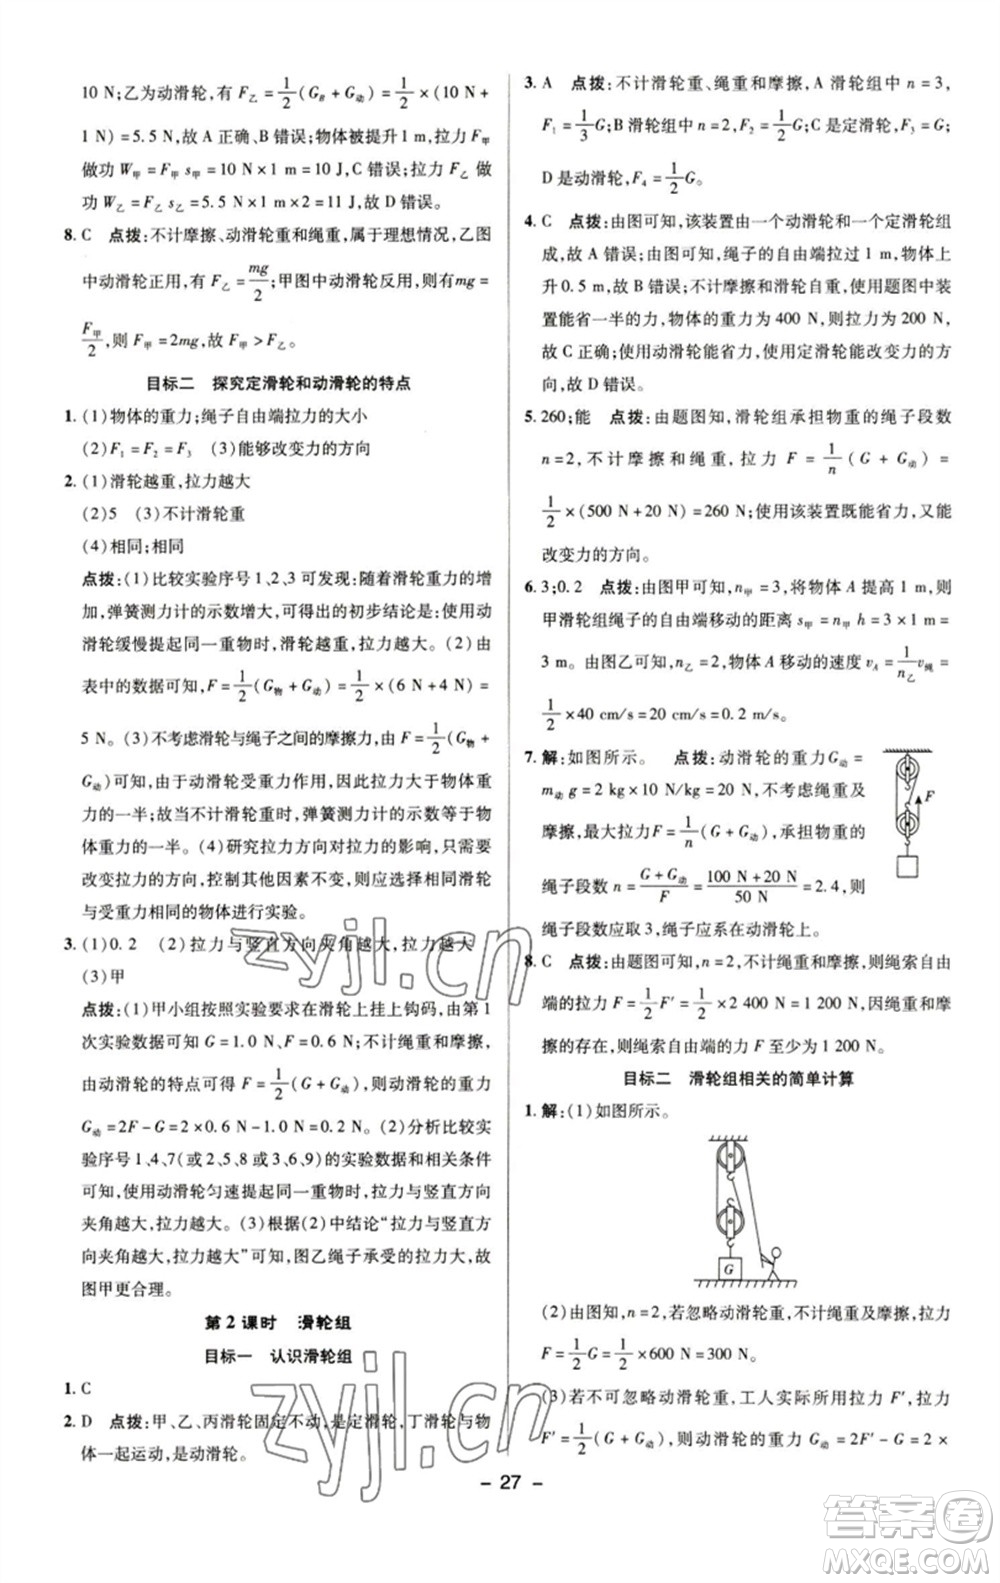 10 N;乙为动滑轮,有 F乙 = 1/2(G物 + G动) = 1/2 × (10 N +
1 N) = 5.5 N,故 A 正确、B 错误;物体被提升 1 m,拉力 F甲
做功 W甲 = F甲 s甲 = 10 N × 1 m = 10 J,C 错误;拉力 F乙 做
功 W乙 = F乙 s乙 = 5.5 N × 1 m × 2 = 11 J,故 D 错误。
8. C 点拨:不计摩擦、动滑轮重和绳重,属于理想情况,乙图
中动滑轮正用,有 F乙 = mg/2;甲图中动滑轮反用,则有mg =
F甲/2,则 F甲 = 2mg,故 F甲 > F乙。
目标二 探究定滑轮和动滑轮的特点
1. (1)物体的重力;绳子自由端拉力的大小
(2)F₁ = F₂ = F₃ (3)能够改变力的方向
2. (1)滑轮越重,拉力越大
(2)5 (3)不计滑轮重
(4)相同;相同
点拨:(1)比较实验序号 1、2、3 可发现:随着滑轮重力的增
加,弹簧测力计的示数增大,可得到的初步结论是:使用动
滑轮缓慢提起同一重物时,滑轮越重,拉力越大。(2)由
表中的数据可知,F = 1/2(G物 + G动) = 1/2 × (6 N + 4 N) =
5 N。(3)不考虑滑轮与绳子之间的摩擦力,由 F = 1/2(G物 +
G动)可知,由于动滑轮受重力作用,因此拉力大于物体重力
的一半;故当不计滑轮重时,弹簧测力计的示数等于物
体重力的一半。(4)研究拉力方向对拉力的影响,只需要
改变拉力的方向,控制其他因素不变,可选择相同的滑轮
与受重力相同的物体进行实验。
3. (1)0.2 (2)拉力与竖直方向夹角越大,拉力越大
(3)甲
点拨:(1)甲小组按照实验要求在滑轮上挂上钩码,由第 1
次实验数据可知 G = 1.0 N、F = 0.6 N;不计绳重与摩擦,
由动滑轮的特点可得 F = 1/2(G + G动),则动滑轮的重力
G动 = 2F − G = 2 × 0.6 N − 1.0 N = 0.2 N。(2)分析比较实
验序号 1、4、7(或 2、5、8 或 3、6、9)的实验数据和相关条件
可知,使用动滑轮匀速提起同一重物时,拉力与竖直方向
夹角越大,拉力越大。(3)根据(2)中结论“拉力与竖直方
向夹角越大,拉力越大”可知,图乙绳子承受的拉力大,故
图甲更合理。
第 2 课时 滑轮组
目标一 认识滑轮组
1. C
2. D 点拨:甲、乙、丙滑轮固定不动,是定滑轮,丁滑轮与物
体一起运动,是动滑轮。
3. A 点拨:不计滑轮重、绳重和摩擦,A 滑轮组中 n = 3,
F₁ = 1/3 G;B 滑轮组中 n = 2,F₂ = 1/2 G;C 是定滑轮,F₃ = G;
D 是动滑轮,F₄ = 1/2 G。
4. C 点拨:由图可知,该装置由一个动滑轮和一个定滑轮组
成,故 A 错误;由图可知,绳子的自由端拉过 1 m,物体上
升 0.5 m,故 B 错误;不计摩擦和滑轮自重,使用题图中装
置能省一半的力,物体的重力为 400 N,则拉力为 200 N,
故 C 正确;使用动滑轮能省力,使用定滑轮能改变力的方
向,故 D 错误。
5. 260;能 点拨:由题图知,滑轮组承担物重的绳子段数
n = 2,不计摩擦和绳重,拉力 F = 1/n (G + G动) =
1/2 × (500 N + 20 N) = 260 N;使用该装置既能省力,又能
改变力的方向。
6. 3;0.2 点拨:由图甲可知,n甲 = 3,将物体 A 提高 1 m,
甲滑轮组绳子的自由端移动的距离 s甲 = n甲 h = 3 × 1 m =
3 m。由图乙可知,n乙 = 2,物体 A 移动的速度 vA = 1/n乙 v绳 =
1/2 × 40 cm/s = 20 cm/s = 0.2 m/s。
7. 解:如图所示。 点拨:动滑轮的重力G动 =
m动 g = 2 kg × 10 N/kg = 20 N,不考虑绳重及
摩擦,最大拉力F = 1/n(G + G动),承担物重的
绳子段数 n = (G + G动)/F = (100 N + 20 N)/50 N = 2.4,则
绳子段数应取 3,绳子应系在动滑轮上。
F
8. C 点拨:由题图可知,n = 2,不计绳重和摩擦,则绳索自由
端的拉力 F = 1/2 F′ = 1/2 × 2 400 N = 1 200 N,因绳重和摩
擦的存在,则绳索自由端的力 F 至少为 1 200 N。
目标二 滑轮组相关的简单计算
1. 解:(1)如图所示。
G
(2)由图知,n = 2,若忽略动滑轮重,不计绳重及摩擦,拉力
F = 1/2 G = 1/2 × 600 N = 300 N。
(3)若不可忽略动滑轮重,工人实际所用拉力 F′,拉力
F′ = 1/2(G + G动),则动滑轮的重力 G动 = 2F′ − G = 2 ×
- 27 -
zyjl.cn
zyjl.cn
答案圈
MXQE.COM